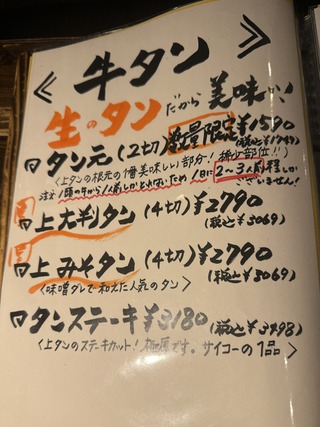 ≪ 牛タン ≫
生のタンだから美味い!
タン元 (2切) 数量限定 ¥1590
(税込¥1749)
〈上タンの根元の1番美味しい部分! 稀少部位!!〉
注文 1頭の牛から1人前しかとれないため1日に2〜3人前程しか
ございません!
上大判タン (4切) ¥2790
(税込¥3069)
上みそタン (4切) ¥2790
(税込¥3069)
〈味噌ダレで和えた人気のタン〉
タンステーキ ¥3180 (税込¥3498)
〈上タンのステーキカット! 極厚です。サイコーの1品〉